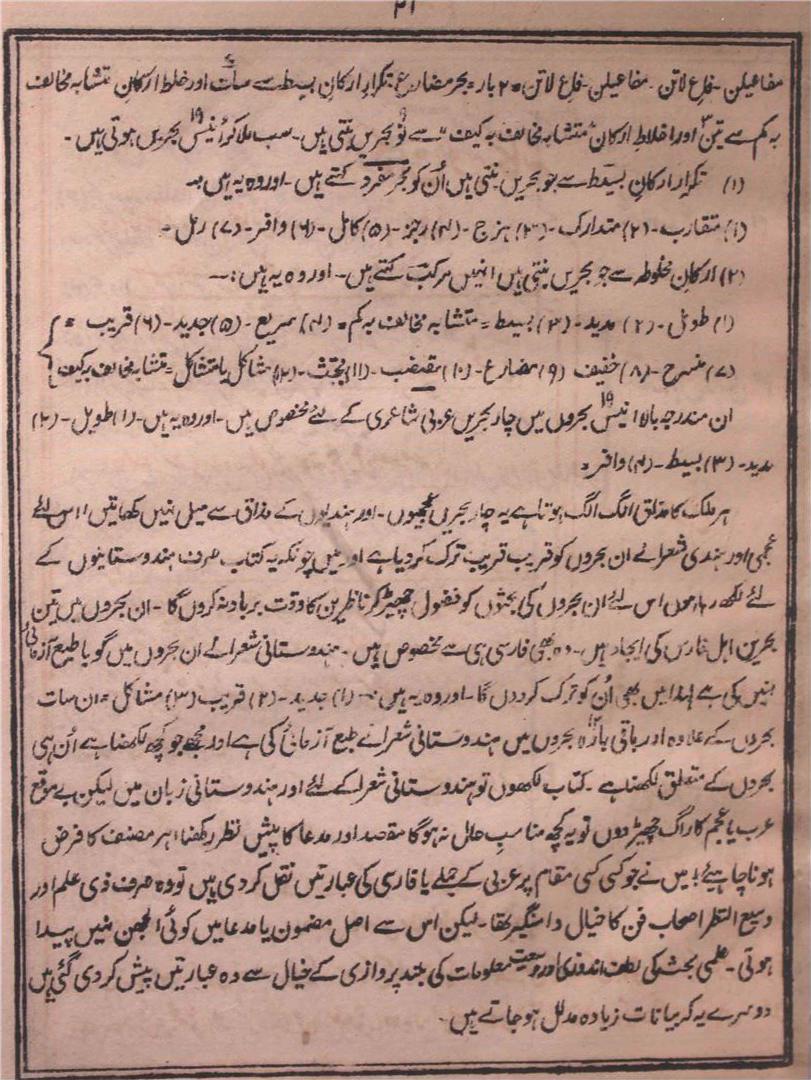 ۲۱
مفاعیلن - فاع لاتن - مفاعیلن - فاع لاتن = ۲ بار = بحر مضارع تکرارِ ارکانِ بسیط سے سات۷ اور خلط ارکانِ متشابہ مخالف
بہ کم سے تین۳ اور اخلاطِ ارکان "متشابہ مخالف بہ کیف" سے نو۹ بحریں بنتی ہیں - سب ملا کر انیس۱۹ بحریں ہوتی ہیں -
(۱) تکرار ارکانِ بسیط سے جو بحریں بنتی ہیں اُن کو بحرِ مفرد کہتے ہیں - اور وہ یہ ہیں :-
(۱) متقارب - (۲) متدارک - (۳) ہزج - (۴) رجز - (۵) کامل - (۶) وافر - (۷) رمل -
(۲) ارکانِ مخلوطہ سے جو بحریں بنتی ہیں انہیں مرکب کہتے ہیں - اور وہ یہ ہیں :-
(۱) طویل - (۲) مدید - (۳) بسیط = متشابہ مخالف بہ کم = (۴) سریع - (۵) جدید - (۶) قریب =
(۷) منسرح - (۸) خفیف (۹) مضارع - (۱۰) مقتضب - (۱۱) مجتث - (۱۲) مشاکل یا متشاکل = متشابہ مخالف بہ کیف
ان مندرجہ بالا انیس۱۹ بحروں میں چار بحریں عربی شاعری کے لئے مخصوص ہیں - اور وہ یہ ہیں - (۱) طویل - (۲)
مدید - (۳) بسیط - (۴) وافر =
ہر ملک کا مذاق الگ الگ ہوتا ہے یہ چار بحریں عجمیوں - اور ہندیوں کے مذاق سے میل نہیں کھاتیں اس لئے
عجمی اور ہندی شعرا نے ان بحروں کو قریب قریب ترک کر دیا ہے اور میں چونکہ یہ کتاب صرف ہندوستانیوں کے
لئے لکھ رہا ہوں اس لئے ان بحروں کی بحثوں کو فضول چھیڑ کر ناظرین کا وقت برباد نہ کروں گا - ان بحروں میں تین
بحریں اہل فارس کی ایجاد ہیں - وہ بھی فارسی ہی سے مخصوص ہیں - ہندوستانی شعرا نے ان بحروں میں گویا طبع آزمائی
نہیں کی ہے لہذا میں بھی اُن کو ترک کر دوں گا - اور وہ یہ ہیں :- (۱) جدید - (۲) قریب (۳) مشاکل = ان سات
بحروں کے علاوہ اور باقی بارہ۱۲ بحروں میں ہندوستانی شعرا نے طبع آزمائی کی ہے اور مجھے جو کچھ لکھنا ہے اُن ہی
بحروں کے متعلق لکھنا ہے - کتاب لکھوں تو ہندوستانی شعرا کے لئے اور ہندوستانی زبان میں لیکن بے موقع
عرب یا عجم کا راگ چھیڑ دوں تو یہ کچھ مناسبِ حال نہ ہوگا مقصد اور مدعا کا پیش نظر رکھنا ہر مصنف کا فرض
ہونا چاہئے! میں نے جو کسی کسی مقام پر عربی کے جملے یا فارسی کی عبارتیں نقل کر دی ہیں تو وہ صرف ذی علم اور
وسیع النظر اصحاب فن کا خیال دامنگیر تھا - لیکن اس سے اصل مضمون یا مدعا میں کوئی الجھن نہیں پیدا
ہوتی - علمی بحث کی لطف اندوزی اور وسعتِ معلومات کی بلند پروازی کے خیال سے وہ عبارتیں پیش کر دی گئی ہیں
دوسرے یہ کہ بیانات زیادہ مدلل ہو جاتے ہیں -